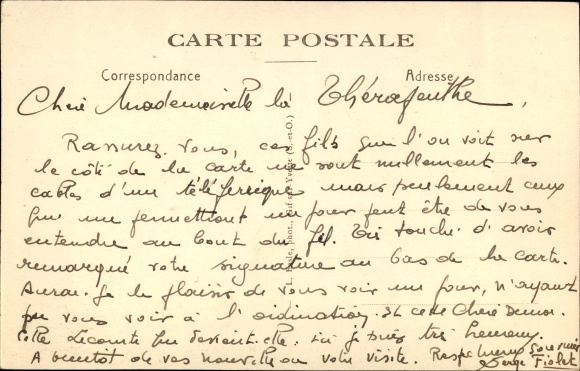 CARTE POSTALE
Correspondance Adresse
Chère Mademoiselle la Thérapeuthe,
Rassurez-vous, ces fils que l'on voit sur
le côté de la carte ne sont nullement les
cables d'un téléférique mais seulement ceux
qui me permettront un jour peut être de vous
entendre au bout du fil. Très touché d'avoir
remarqué votre signature au bas de la carte.
Aurai-je le plaisir de vous voir un jour, n'ayant
pu vous voir à l'ordination. Et cette Chère Demoi-
selle Lecomte que devient-elle. ici je suis très heureux.
A bientôt de vos nouvelles ou votre visite. Respectueux Souvenir
Serge Fiolet
phot., (S.-et-O.)